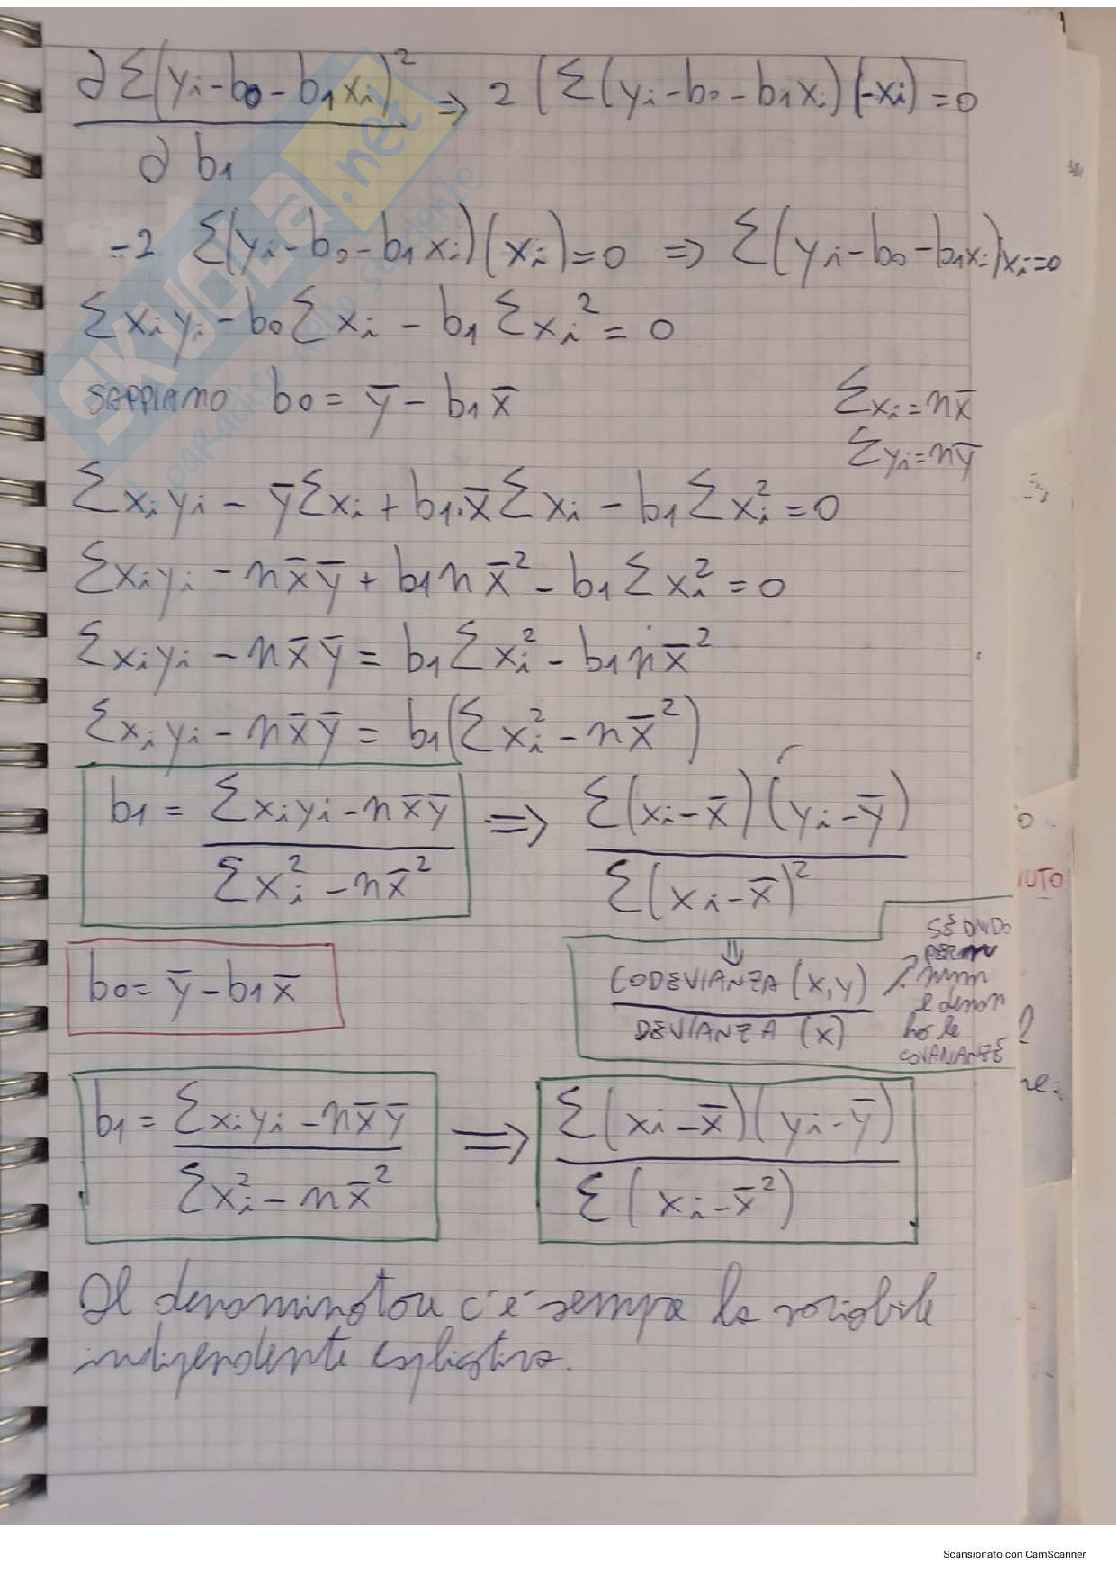 ∂ Σ(yi - b0 - b1xi)² ⇒ 2 (Σ(yi - b0 - b1xi)(-xi) = 0
∂ b1
-2 Σ(yi - b0 - b1xi)(xi) = 0 ⇒ Σ(yi - b0 - b1xi)xi = 0
Σxiyi - b0Σxi - b1Σxi² = 0
SAPPIAMO b0 = ȳ - b1x̄ Σxi = nx̄
Σyi = nȳ
Σxiyi - ȳΣxi + b1·x̄Σxi - b1Σxi² = 0
Σxiyi - nx̄ȳ + b1nx̄² - b1Σxi² = 0
Σxiyi - nx̄ȳ = b1Σxi² - b1nx̄²
Σxiyi - nx̄ȳ = b1(Σxi² - nx̄²)
b1 = Σxiyi - nx̄ȳ ⇒ Σ(xi - x̄)(yi - ȳ)
Σxi² - nx̄² Σ(xi - x̄)²
b0 = ȳ - b1x̄
⇓
CODEVIANZA (x,y)
DEVIANZA (x)
SE DIVIDO
PER n
num
e denom
ho le
COVARIANZE
b1 = Σxiyi - nx̄ȳ ⇒ Σ(xi - x̄)(yi - ȳ)
Σxi² - nx̄² Σ(xi - x̄²)
Al denominatore c'è sempre la variabile
indipendente esplicativa.
SKUOLA.net
Scansionato con CamScanner